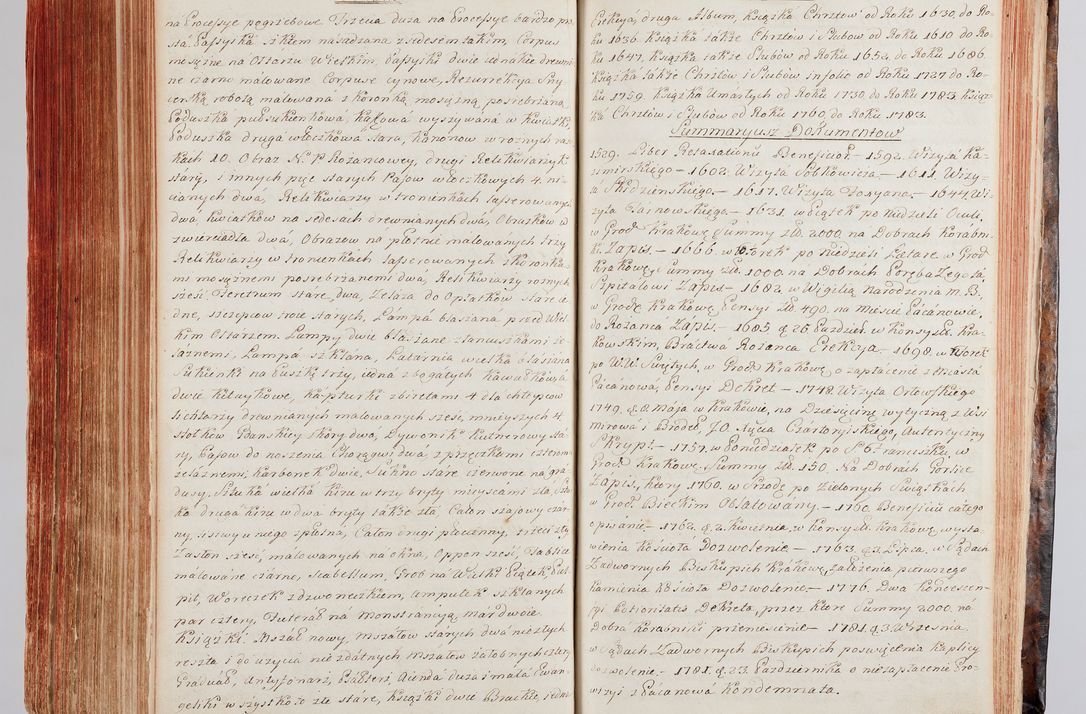 na Processye pogrzebowe Trzecia duża na Processye bardzo pro
stá Passyika szkłem nasadzana z sedesem takim, Corpus
mosiężne na Ołtarzu Wielkim, Passyiki dwie iednakie drewnia
ne czarno malowane Corpusy cynowe, Rezurrekcya Sny
cerską robotą malowana z koronką mosiężną posrebrzaną
Poduszka pułsukienkowa kafowa wyszywana w kwiatki,
Poduszka druga włoczkowa stara, kanonow w rożnych ra
kach 10. Obraz N. P. Rożancowey, drugi Relikwiarzyk
stary, i innych pięć starych Pasow włoczkowych 4. ni
cianych dwá, Relikwiarzy w tronienkach lasserowanych
dwá kwiatkow na sedesach drewnianych dwá, Obrazkow w
zwierciadła dwá, Obrazow ná płotnie malowánych trzy
Relikwiarzy w tronienkach lasserowanych z koronka
mi mosiężnemi posrebrzanemi dwá, Relikwiarzy rożnych
sześć. Feretrum stare dwa, Zelaza do Opłatkow stare ie
dne, szczypcow troie starych, Lampá blaszana przed Wiel
kim Ołtarzem Lampy dwie blaszane z łancuszkami że
laznemi, Lampá szklana, Latarnia wielka blaszana
Sukienki na Puszkę trzy, iedna z bogatych kawałkow á
dwie kitaykowe, kápturki z biretami 4 dla chłopcow
Lichtarzy drewnianych malowanych sześć mnieyszych 4
Stołkow Gdańskiey skóry dwá, Dywonik kutnerowy stá
ry, Pásow do noszenia Chorągwi dwá z przączkami czterma
żelaznemi, karbonek dwie, Sukno stare czerwone na gra
dusy, Sztuka wielka kiru w trzy bryty mieyscami złá, Sztu
ka druga kiru w dwa bryty także złá Całun szajowy czar
ny, szerszy u niego spatną, Całun drugi płucienny, trzeci zły
Zasłon sześć, malowanych na okna, Oppon sześć, Tablica
malowane czarno, Scabellum, Grob ná Wielki Piątek, Pul
pit, Woreczek z dzwoneczkiem, ampułek szklanych
par cztery, Futerał na Monstrancyą, Mar dwoie
Książki Mszał nowy, Mszałow starych dwá niezłych
reszta i do użycia nie zdátnych Mszałow żałobnych cztery
Graduał, Antyfonarz, Psałterz, Aienda duża i mała Ewan
geliki wszystko to złe stare, książki dwie Bractw, iedna
Erekcyá, druga Album, Książka Chrztow od Roku 1630. do Ro
ku 1636. Książka także Chrztow i Slubow od Roku 1610 do Ro
ku 1647. Książka także Slubow od Roku 1652. do Roku 1686.
Książka także Chrztow i Slubow in folio od Roku 1737 do Ro
ku 1759. Książka Umarłych od Roku 1730. do Roku 1783. Książ
ka Chrztow i Slubow od Roku 1760. do Roku 1783.
Summaryusz Dokumentow
1529. Liber Retaxationū Beneficior̃ — 1592. Wizyta Ka
zimirskiego — 1602. Wizyta Sobkowicza — 1611 Wizy
ta Skidzienskiego. — 1617. Wizyta Foxyana. — 1644 Wi
zyta Tarnowskiego. — 1631. w Piątek po niedzieli Oculi,
w Grod: krakow: Summy zł. 2000. na Dobrach Korabni
ki Zapis. — 1666. w Wtorek po niedzieli Lætare w Grod:
krakow: Summy zł. 1000. na Dobrach Poręba Zegota
Szpitalowi Zapis. — 1682. w Wigilią Narodzenia M. B.
w Grodz: krakow: Pensyi zł. 490. na mieście Pácanowie,
do Rożanca Zapis. — 1685 d. 26 Paździer: w Konsystł: Kra
kowskim, Bractwa Rożanca Erekcya. — 1698. w Wtorek
po W.W. Swiętych, w Grod: krakow: o zapłacenie z Miasta
Pácanowá, Pensyi Dekret. — 1748. Wizyta Orłowskiego
1749. d. 8. Maja w Krakowie, na Dziesięcinę wytyczną z Wsi
mrowá i Brodeł, J.O. Xięcia Czartoryiskiego, Autentyczny
Skrypt. — 1757. w Poniedziałek po S. Franciszku, w
Grod: Krakow: Summy zł. 150. na Dobrach Gorlice
Zapis, ktory 1760. w Srzodę po Zielonych Swiątkach
w Grod: Bieckim Oblatowány. — 1760. Beneficii całego
opisanie — 1762. d. 2. Kwietnia, w Konsyst: krakow: wysta
wienia kościoła Dozwolenie. — 1763. d. 2. Lipca, w Sądach
Zadwornych Biskupich krakow: założenia pierwszego
kamienia kościoła Dozwolenie. — 1776. Dwa Kondescen
syi Potioritatis Dekreta, przez ktore Summy 2000. ná
Dobrá Korabniki przeniesienie — 1781. d. 3. Wrzesnia
w Sądach Zadwornych Biskupich poświęcenia kaplicy
dozwolenie. — 1781. d. 23. Października o niezapłacenie Pro
wizyi z Pácanowa kondemnata.